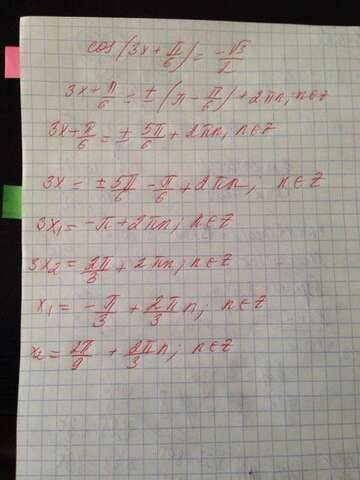 cos(3x + π/6) = -√3/2
3x + π/6 = ± (π - π/6) + 2πn, n∈Z
3x + π/6 = ± 5π/6 + 2πn, n∈Z
3x = ± 5π/6 - π/6 + 2πn, n∈Z
3x₁ = -π + 2πn; n∈Z
3x₂ = 2π/3 + 2πn; n∈Z
x₁ = - π/3 + 2/3 πn; n∈Z
x₂ = 2π/9 + 2π/3 n; n∈Z